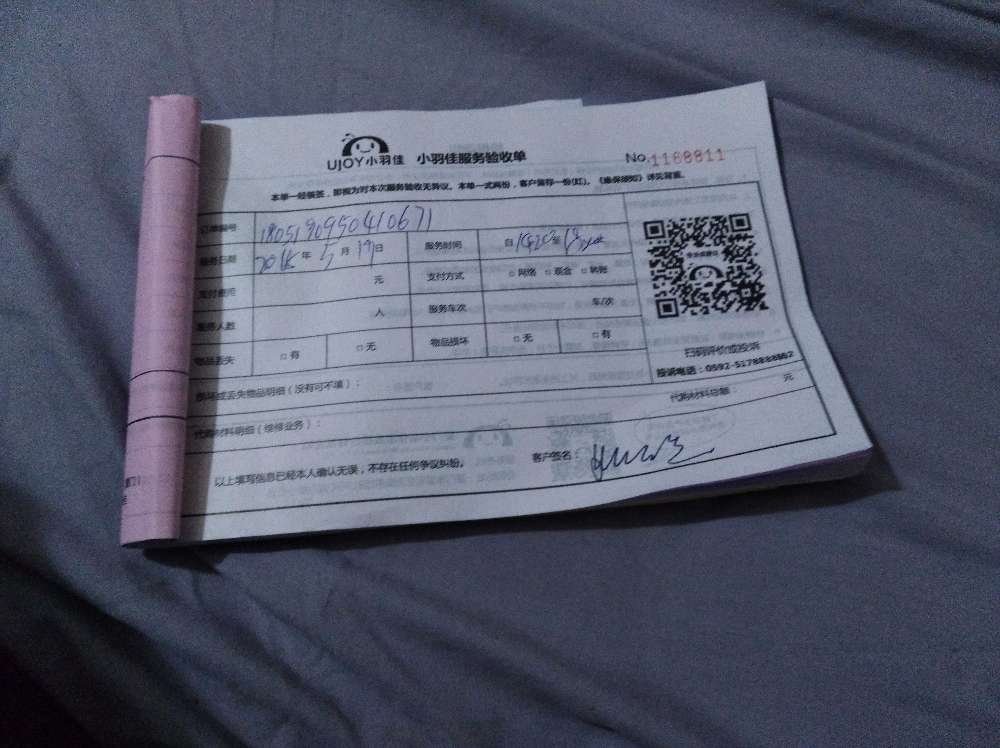 UJOY小羽佳 小羽佳服务验收单 No.1168811
本单一经签签，即视为对本次服务验收无异议。本单一式两份，客户留存一份(红)。《维保须知》详见背面。
订单编号 180519095040671
服务日期 2018年5月19日 服务时间 自 至
支付费用 元 支付方式 □网络 □现金 □转账
服务人数 人 服务车次 车/次
物品丢失 □有 □无 物品损坏 □无 □有
扫码评价或投诉
投诉电话：0592-5178888862
损坏或丢失物品明细（没有可不填）：
代购材料明细（维修业务）： 代购材料总额： 元
以上填写信息已经本人确认无误，不存在任何争议纠纷。 客户签名：